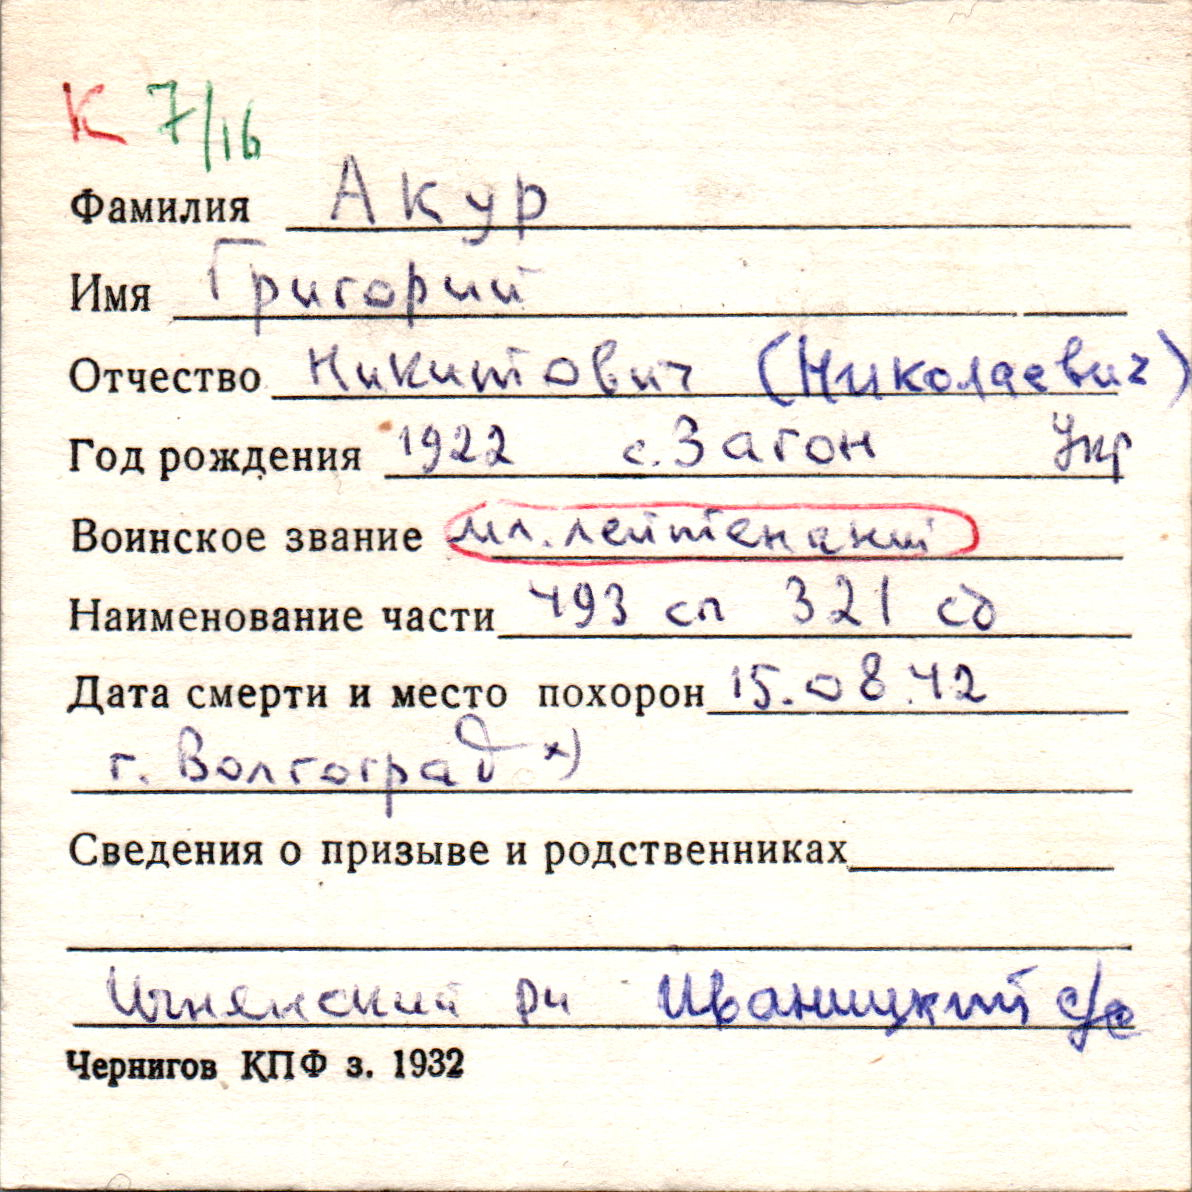 К 7/16
Фамилия Акур
Имя Григорий
Отчество Никитович (Николаевич)
Год рождения 1922 с. Загон Укр
Воинское звание мл. лейтенант
Наименование части 493 сп 321 сд
Дата смерти и место похорон 15.08.42
г. Волгоград х)
Сведения о призыве и родственниках
Ичнянский рн Иваницкий с/с
Чернигов КПФ з. 1932